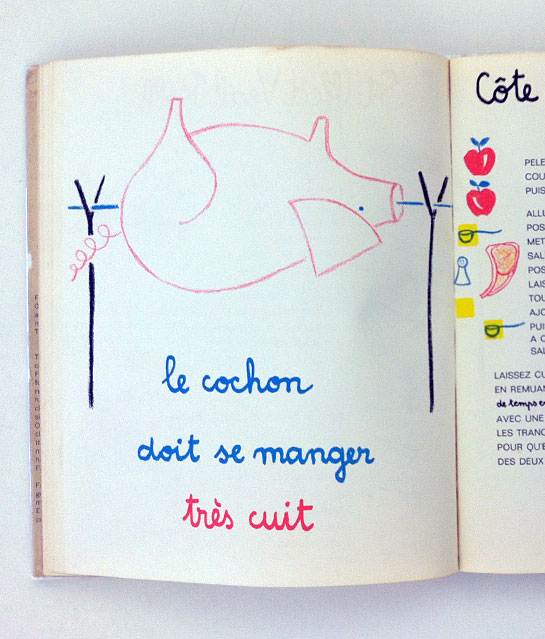 le cochon
doit se manger
très cuit
Côte
PELE
COU
PUIS
ALLU
POS
MET
SAL
POS
LAIS
TOU
AJO
PUI
A C
SAL
LAISSEZ CU
EN REMUAN
de temps e
AVEC UNE
LES TRANC
POUR QU'E
DES DEUX